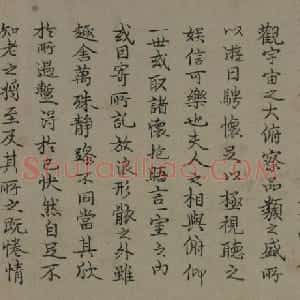 觀宇宙之大俯察品類之盛所
以遊目騁懷足以極視聽之
娛信可樂也夫人之相與俯仰
一世或取諸懷抱悟言一室之內
或因寄所託放浪形骸之外雖
趣舍萬殊靜躁不同當其欣
於所遇蹔得於己快然自足不
知老之將至及其所之既惓情